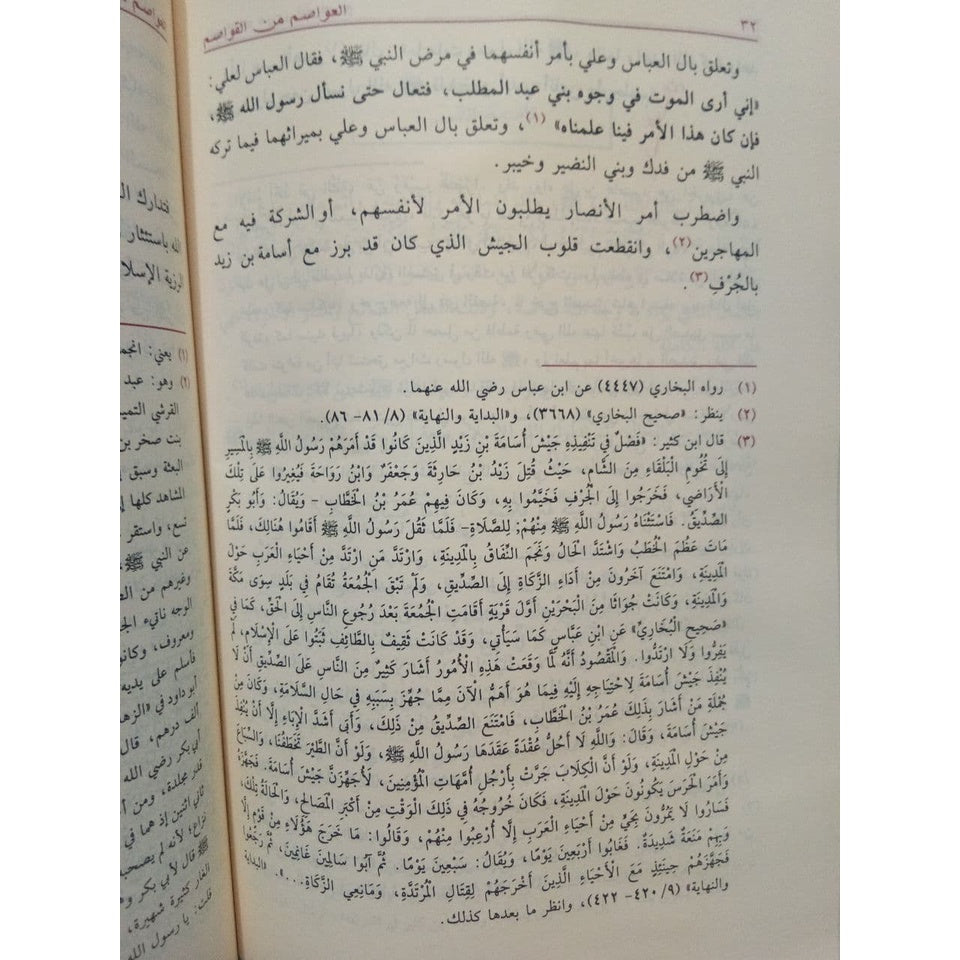 ٣٢
العواصم من القواصم
وتعلق بال العباس وعلي بأمر أنفسهما في مرض النبي ﷺ، فقال العباس لعلي:
«إني أرى الموت في وجوه بني عبد المطلب، فتعال حتى نسأل رسول الله ﷺ،
فإن كان هذا الأمر فينا علمناه» (١)، وتعلق بال العباس وعلي بميراثهما فيما تركه
النبي ﷺ من فدك وبني النضير وخيبر.
واضطرب أمر الأنصار يطلبون الأمر لأنفسهم، أو الشركة فيه مع
المهاجرين(٢)، وانقطعت قلوب الجيش الذي كان قد برز مع أسامة بن زيد
بالجُرْفِ(٣).
(١) رواه البخاري (٤٤٤٧) عن ابن عباس رضي الله عنهما.
(٢) ينظر: «صحيح البخاري» (٣٦٦٨)، و«البداية والنهاية» (٨/ ٨١- ٨٦).
(٣) قال ابن كثير: «فَصْلٌ فِي تَنْفِيذِهِ جَيْشَ أُسَامَةَ بْنِ زَيْدٍ الَّذِينَ كَانُوا قَدْ أَمَرَهُمْ رَسُولُ اللَّهِ ﷺ بِالْمَسِيرِ
إِلَى تُخُومِ الْبَلْقَاءِ مِنَ الشَّامِ، حَيْثُ قُتِلَ زَيْدُ بْنُ حَارِثَةَ وَجَعْفَرٌ وَابْنُ رَوَاحَةَ فَيُغِيرُوا عَلَى تِلْكَ
الْأَرَاضِي، فَخَرَجُوا إِلَى الْجُرْفِ فَخَيَّمُوا بِهِ، وَكَانَ فِيهِمْ عُمَرُ بْنُ الْخَطَّابِ - وَيُقَالُ: وَأَبُو بَكْرٍ
الصِّدِّيقُ. فَاسْتَثْنَاهُ رَسُولُ اللَّهِ ﷺ مِنْهُمْ; لِلصَّلَاةِ- فَلَمَّا ثَقُلَ رَسُولُ اللَّهِ ﷺ أَقَامُوا هُنَالِكَ، فَلَمَّا
مَاتَ عَظُمَ الْخَطْبُ وَاشْتَدَّ الْحَالُ وَنَجَمَ النِّفَاقُ بِالْمَدِينَةِ، وَارْتَدَّ مَنِ ارْتَدَّ مِنْ أَحْيَاءِ الْعَرَبِ حَوْلَ
الْمَدِينَةِ، وَامْتَنَعَ آخَرُونَ مِنْ أَدَاءِ الزَّكَاةِ إِلَى الصِّدِّيقِ، وَلَمْ تَبْقَ الْجُمُعَةُ تُقَامُ فِي بَلَدٍ سِوَى مَكَّةَ
وَالْمَدِينَةِ، وَكَانَتْ جُوَاثَا مِنَ الْبَحْرَيْنِ أَوَّلَ قَرْيَةٍ أَقَامَتِ الْجُمُعَةَ بَعْدَ رُجُوعِ النَّاسِ إِلَى الْحَقِّ، كَمَا فِي
«صَحِيحِ الْبُخَارِيِّ» عَنِ ابْنِ عَبَّاسٍ كَمَا سَيَأْتِي، وَقَدْ كَانَتْ ثَقِيفٌ بِالطَّائِفِ ثَبَتُوا عَلَى الْإِسْلَامِ، لَمْ
يَفِرُّوا وَلَا ارْتَدُّوا. وَالْمَقْصُودُ أَنَّهُ لَمَّا وَقَعَتْ هَذِهِ الْأُمُورُ أَشَارَ كَثِيرٌ مِنَ النَّاسِ عَلَى الصِّدِّيقِ أَنْ لَا
يُنْفِذَ جَيْشَ أُسَامَةَ لِاحْتِيَاجِهِ إِلَيْهِ فِيمَا هُوَ أَهَمُّ الْآنَ مِمَّا جُهِّزَ بِسَبَبِهِ فِي حَالِ السَّلَامَةِ، وَكَانَ مِنْ
جُمْلَةِ مَنْ أَشَارَ بِذَلِكَ عُمَرُ بْنُ الْخَطَّابِ، فَامْتَنَعَ الصِّدِّيقُ مِنْ ذَلِكَ، وَأَبَى أَشَدَّ الْإِبَاءِ إِلَّا أَنْ يُنْفِذَ
جَيْشَ أُسَامَةَ، وَقَالَ: وَاللَّهِ لَا أَحُلُّ عُقْدَةً عَقَدَهَا رَسُولُ اللَّهِ ﷺ، وَلَوْ أَنَّ الطَّيْرَ تَخَطَّفُنَا، وَالسِّبَاعَ
مِنْ حَوْلِ الْمَدِينَةِ، وَلَوْ أَنَّ الْكِلَابَ جَرَّتْ بِأَرْجُلِ أُمَّهَاتِ الْمُؤْمِنِينَ، لَأُجَهِّزَنَّ جَيْشَ أُسَامَةَ. فَجَهَّزَهُ
وَأَمَرَ الْحَرَسَ يَكُونُونَ حَوْلَ الْمَدِينَةِ، فَكَانَ خُرُوجُهُ فِي ذَلِكَ الْوَقْتِ مِنْ أَكْبَرِ الْمَصَالِحِ، وَالْحَالَةُ تِلْكَ،
فَسَارُوا لَا يَمُرُّونَ بِحَيٍّ مِنْ أَحْيَاءِ الْعَرَبِ إِلَّا أُرْعِبُوا مِنْهُمْ، وَقَالُوا: مَا خَرَجَ هَؤُلَاءِ مِنْ قَوْمٍ إِلَّا
وَبِهِمْ مَنَعَةٌ شَدِيدَةٌ. فَغَابُوا أَرْبَعِينَ يَوْمًا، وَيُقَالُ: سَبْعِينَ يَوْمًا. ثُمَّ آبُوا سَالِمِينَ غَانِمِينَ، ثُمَّ رَجَعُوا
فَجَهَّزَهُمْ حِينَئِذٍ مَعَ الْأَحْيَاءِ الَّذِينَ أَخْرَجَهُمْ لِقِتَالِ الْمُرْتَدَّةِ، وَمَانِعِي الزَّكَاةِ...». «البداية
والنهاية» (٩/ ٤٢٠- ٤٢٢)، وانظر ما بعدها كذلك.
فتدارك
الله باستئثار
الرزية الإسلا
(١) يعني:
(٢) وهو: عبد
القرشي
بنت صخر بن
البعثة وسبق
المشاهد كلها
تسع، واستقر
عن النبي ﷺ،
وغيرهم من
الوجه ناتيء
ومعروف، وكانو
فأسلم على يديه
أبو داود في «الزهد
ألف درهم، قال
أبي بكر رضي الله
قدر مجلدة، ومن
ثاني اثنين إذ هما في
نزاع؛ لأنه لم يصحب
ﷺ قال لأبي بكر وهـ
الغار كثيرة شهيرة،
قلت: يا رسول الله